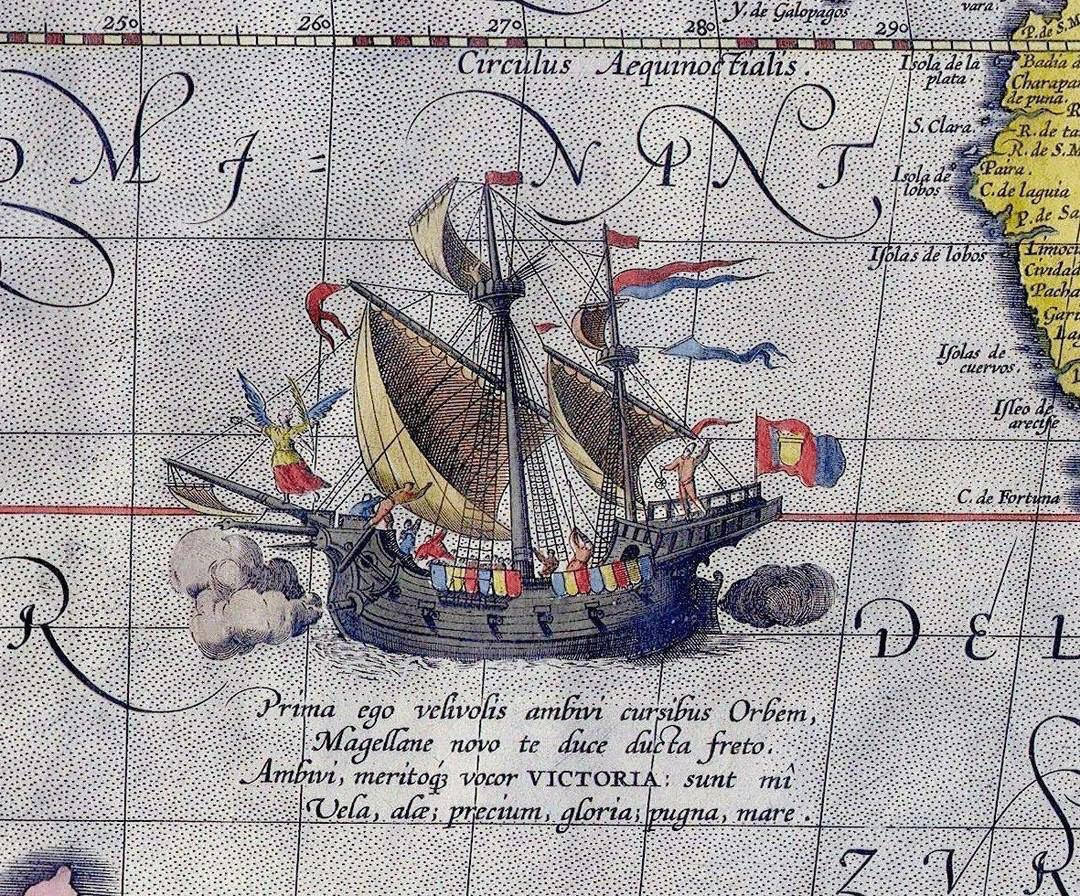 250 260 270 280 290
Y. de Galopagos.
vara.
P. de S. M
Circulus Aequinoctialis.
Isola de la
plata.
Badia d
Charapa
de puna.
R
S. Clara.
R. de ta
R. de S. M
O M I = N A N T
Isola de
lobos
Paira.
C. de laguia
P. de Sa
Isolas de lobos
Limoci
Cividad
Pacha
Gari
La
Isolas de
cuervos.
Isleo de
arecife
C. de Fortuna
R DEL
Prima ego velivolis ambivi cursibus Orbem,
Magellane novo te duce ducta freto.
Ambivi, meritoqꝫ vocor VICTORIA: sunt mî
Vela, alæ; precium, gloria; pugna, mare.
Z V R